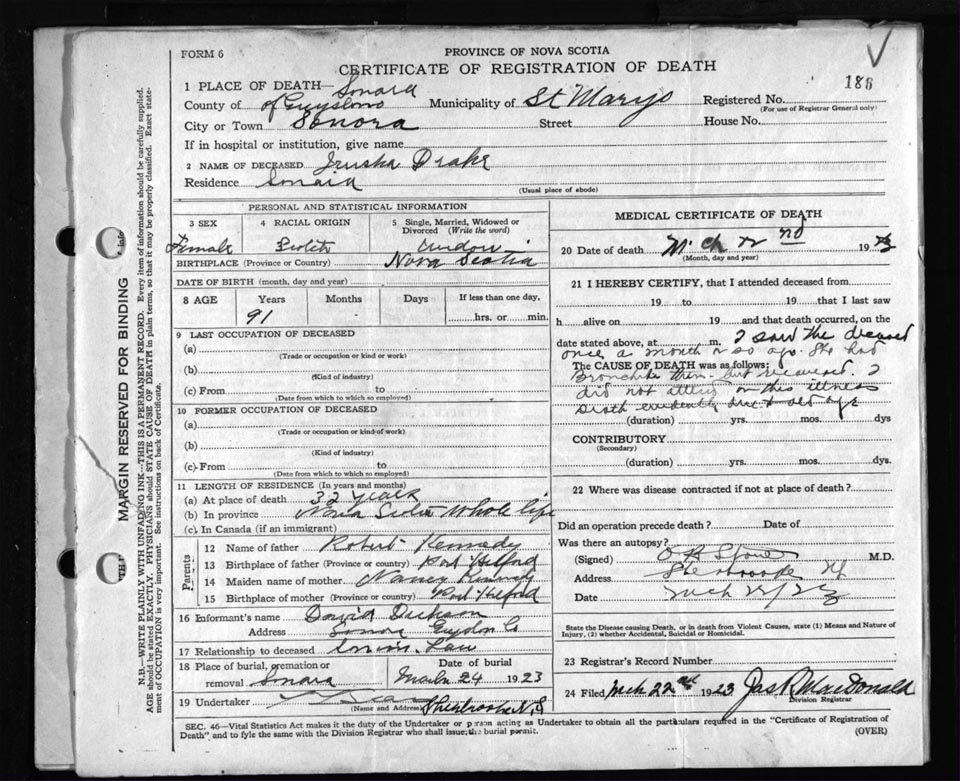 FORM 6
PROVINCE OF NOVA SCOTIA
CERTIFICATE OF REGISTRATION OF DEATH
188
1 PLACE OF DEATH— Sonora
County of Guysboro Municipality of St Marys Registered No.
(For use of Registrar General only)
City or Town Sonora Street House No.
If in hospital or institution, give name
2 NAME OF DECEASED Jrusha Drake
Residence
(Usual place of abode)
PERSONAL AND STATISTICAL INFORMATION
3 SEX 4 RACIAL ORIGIN 5 Single, Married, Widowed or Divorced (Write the word)
Female widow
BIRTHPLACE (Province or Country) Nova Scotia
DATE OF BIRTH (month, day and year)
8 AGE Years Months Days If less than one day,
91 hrs. or min.
9 LAST OCCUPATION OF DECEASED
(a)
(Trade or occupation or kind or work)
(b)
(Kind of industry)
(c) From to
(Date from which to which so employed)
10 FORMER OCCUPATION OF DECEASED
(a)
(Trade or occupation or kind of work)
(b)
(Kind of industry)
(c) From to
(Date from which to which so employed)
11 LENGTH OF RESIDENCE (In years and months)
(a) At place of death 32 years
(b) In province Nova Scotia Whole life
(c) In Canada (if an immigrant)
Parents
12 Name of father Robert Kennedy
13 Birthplace of father (Province or country) Port Hilford
14 Maiden name of mother Nancy
15 Birthplace of mother (Province or country) Port Hilford
16 Informant's name David Dickson
Address Sonora Guysboro Co
17 Relationship to deceased Law
18 Place of burial, cremation or removal Sonora Date of burial March 24 1923
19 Undertaker
(Name and Address) Sherbrooke N.S
MEDICAL CERTIFICATE OF DEATH
20 Date of death Mch 22nd 1923
(Month, day and year)
21 I HEREBY CERTIFY, that I attended deceased from
19 to 19 that I last saw
h alive on 19 and that death occurred, on the
date stated above, at m. I saw the deceased
once a month or so ago. She had
The CAUSE OF DEATH was as follows:
Bronchitis then but recovered. I
did not attend in this illness
Death evidently due to old age
(duration) yrs. mos. dys.
CONTRIBUTORY
(Secondary)
(duration) yrs. mos. dys.
22 Where was disease contracted if not at place of death?
Did an operation precede death? Date of
Was there an autopsy?
(Signed) M.D.
Address Sherbrooke
Date Mch 22/23
State the Disease causing Death, or in death from Violent Causes, state (1) Means and Nature of Injury, (2) whether Accidental, Suicidal or Homicidal.
23 Registrar's Record Number
24 Filed Mch 22nd 1923 Jas R MacDonald
Division Registrar
SEC. 46—Vital Statistics Act makes it the duty of the Undertaker or person acting as Undertaker to obtain all the particulars required in the "Certificate of Registration of
Death" and to fyle the same with the Division Registrar who shall issue the burial permit.
(OVER)
MARGIN RESERVED FOR BINDING
N.B.—WRITE PLAINLY WITH UNFADING INK—THIS IS A PERMANENT RECORD. Every item of information should be carefully supplied.
AGE should be stated EXACTLY. PHYSICIANS should STATE CAUSE OF DEATH in plain terms, so that it may be properly classified. Exact state-
ment of OCCUPATION is very important. See instructions on back of Certificate.